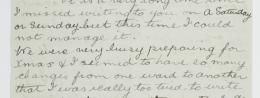 I missed writing to you on a Saturday
or Sunday, but this time I could
not manage it.
We were very busy preparing for
Xmas & I seemed to have so many
changes from one ward to another
that I was really too tired, to write